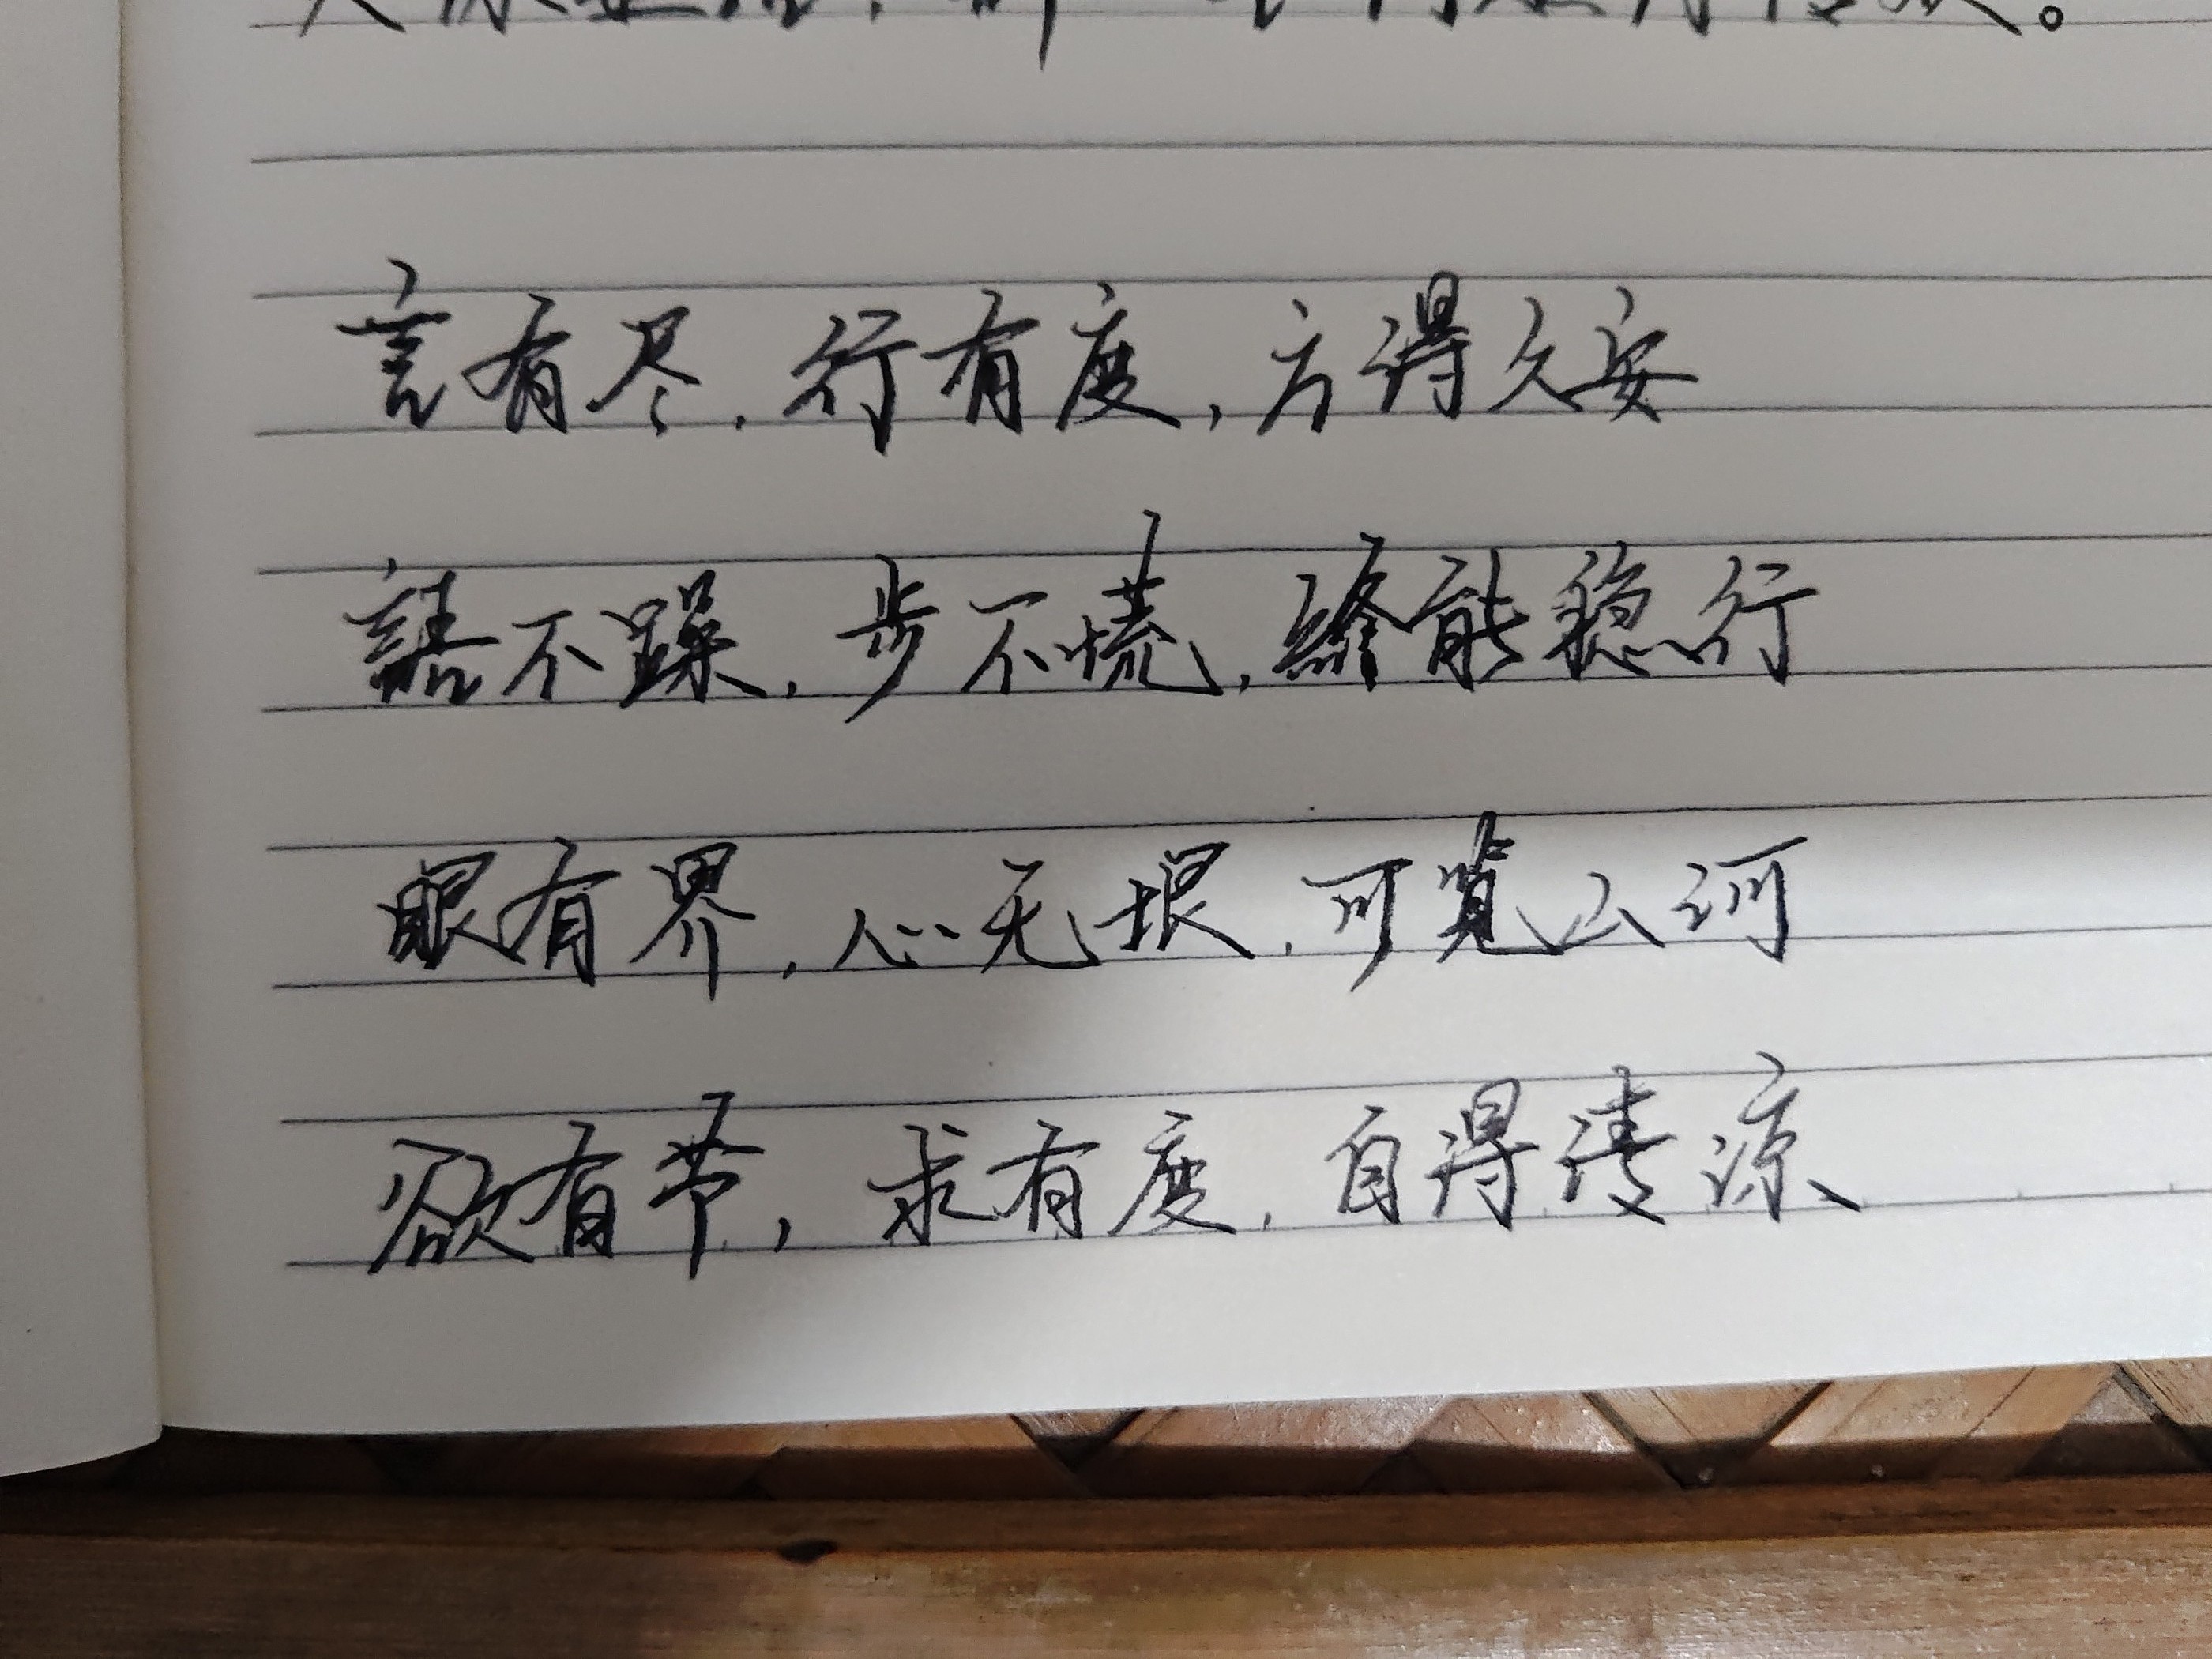 言有尽，行有度，方得久安
語不躁，步不慌，终能稳行
眼有界，心无垠，可览山河
欲有节，求有度，自得清凉